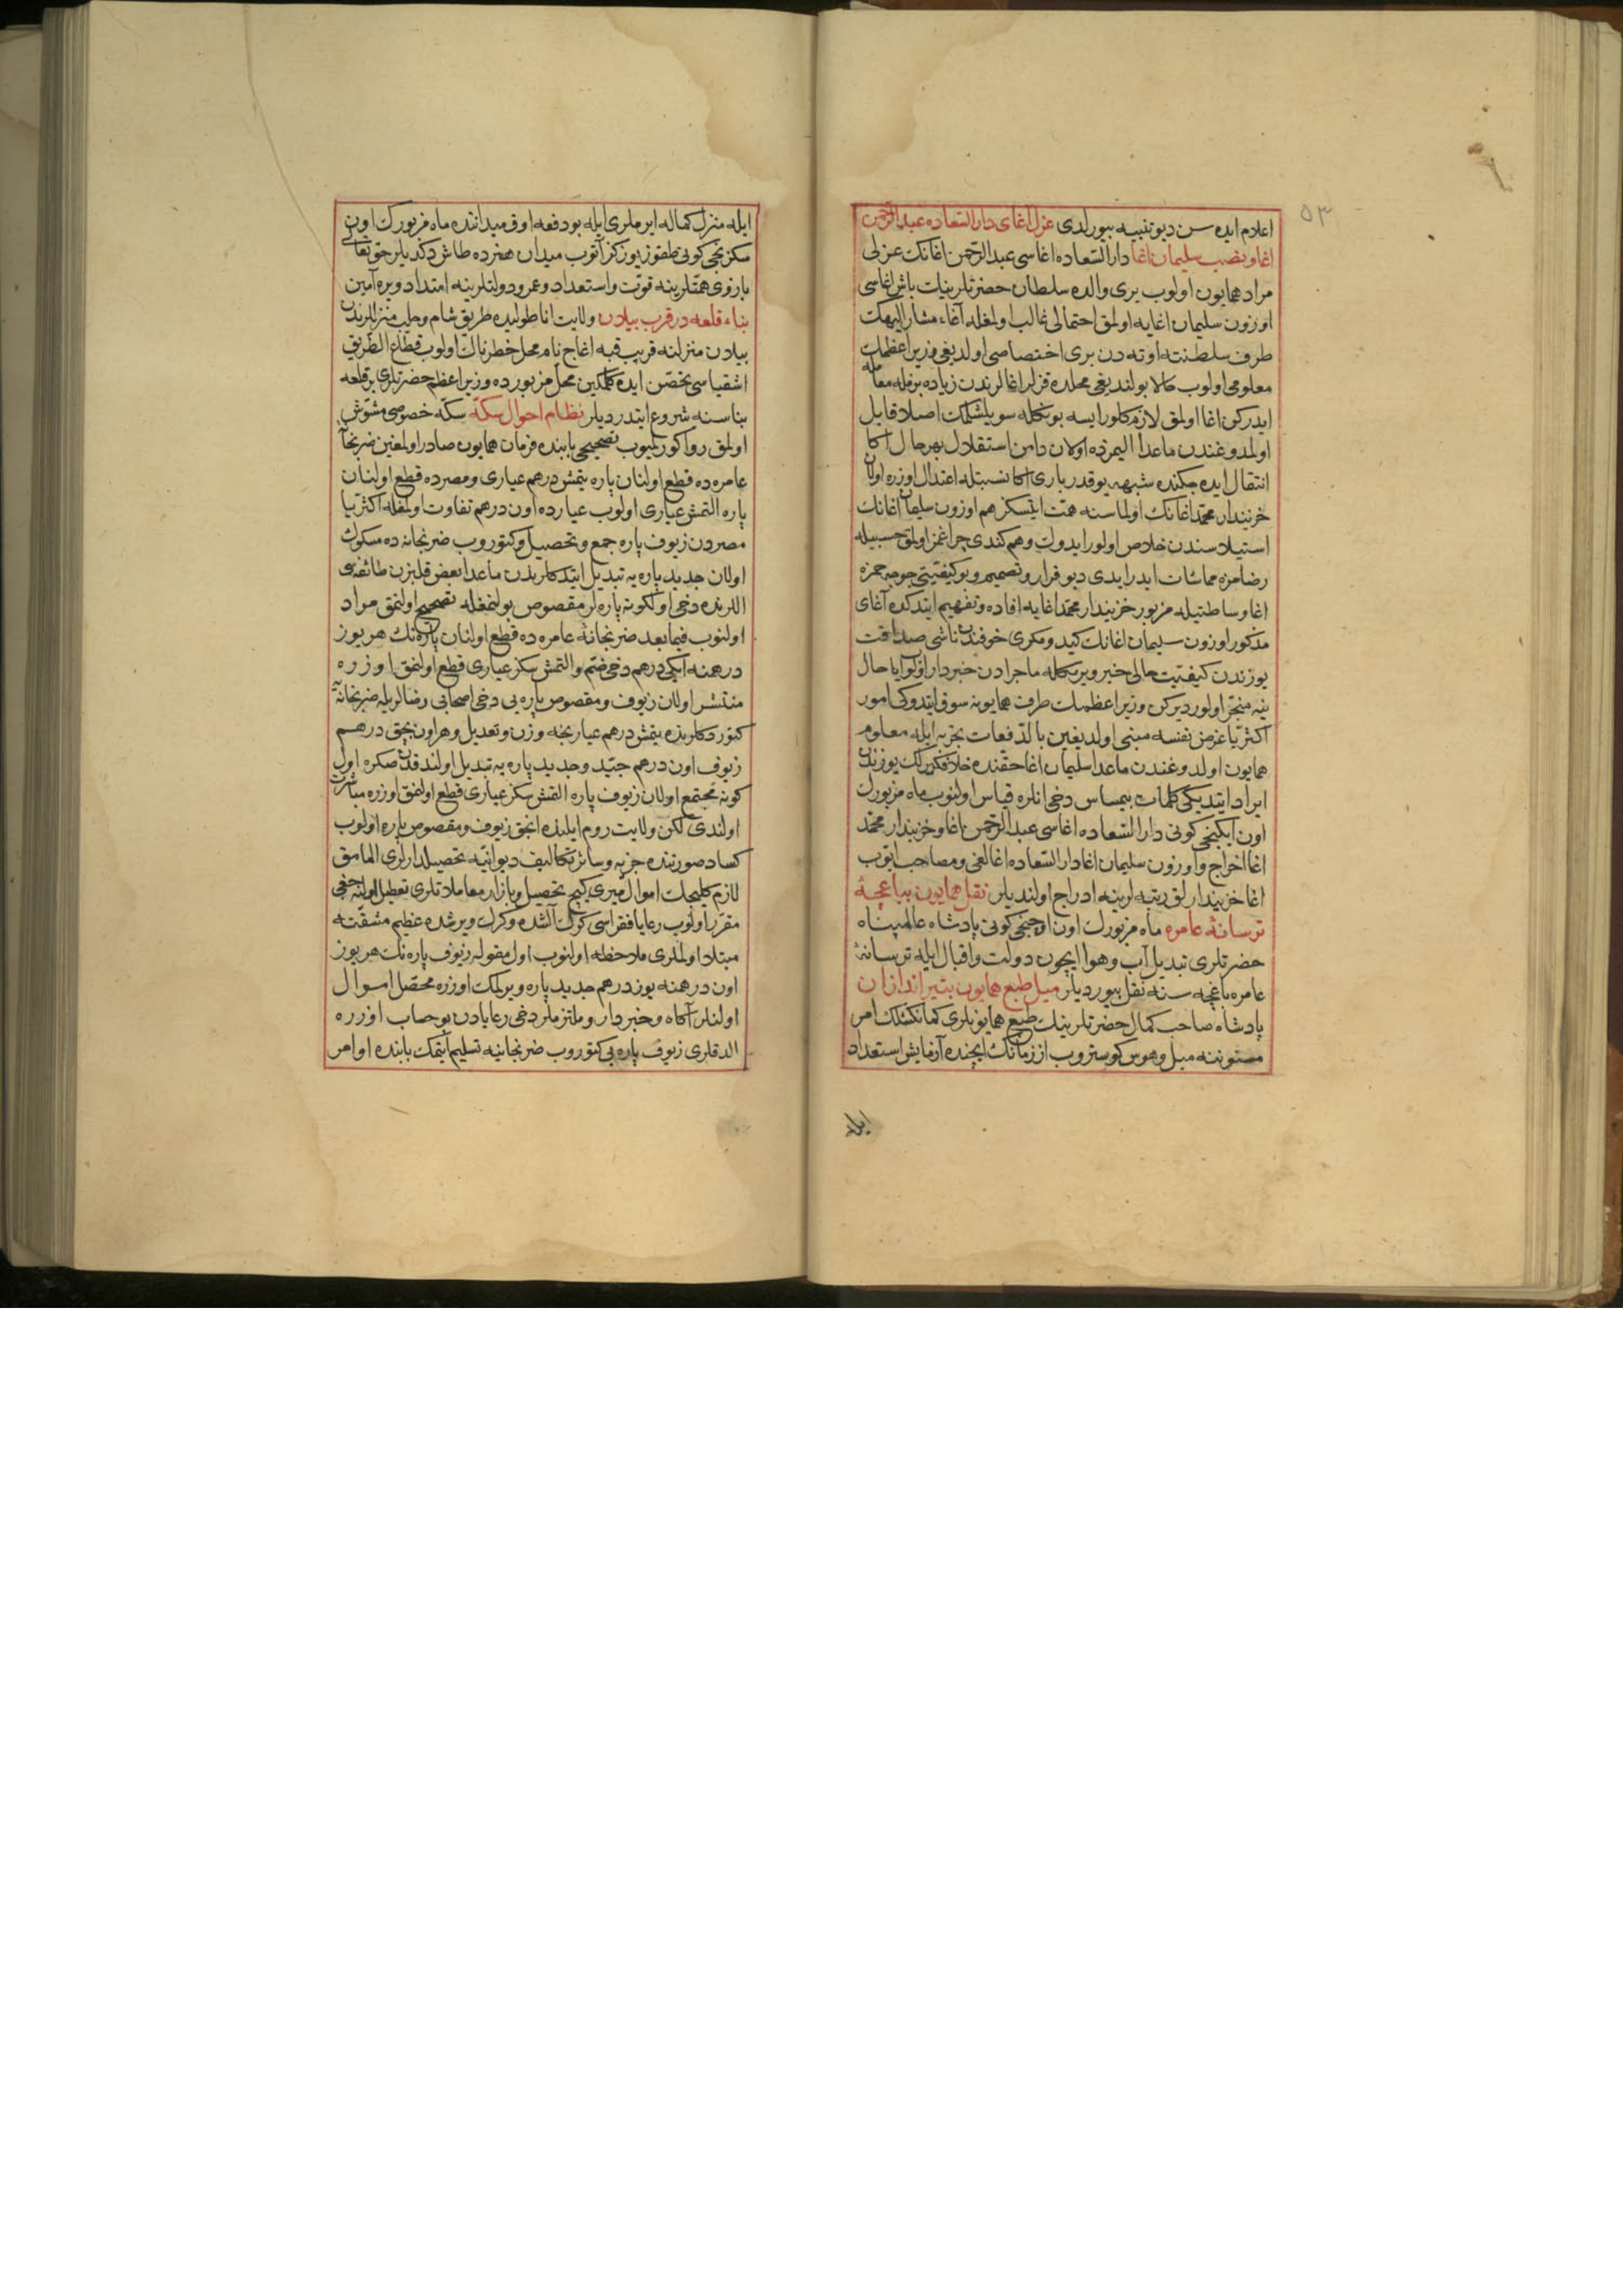 ٥٣
اعلام ايده سن ديو تنبيه بيورلدى عزل اغاى دار السعاده عبد الرحمن
اغا و نصب سليمان اغا دار السعاده اغاسى عبد الرحمن اغانك عزلى
مراد همايون اولوب يرى والده سلطان حضرتلرينك باش اغاسى
اوزون سليمان اغايه اولمق احتمالى غالب اولمغله آغاء مشار اليهك
طرف سلطنته اوته دن برى اختصاصى اولديغى وزير اعظمك
معلومى اولوب حالا بولنديغى محلده قزلر اغالرندن زياده برله معامله
ايدركن اغا اولمق لازم كلور ايسه بونكله سويلشمك اصلا قابل
اولمدوغندن ماعدا اليمزده اولان دامن استقلال بهر حال اكا
انتقال ايده جكنده شبهه يوقدر بارى اكا نسبتله اعتدال اوزره اولان
خزينه دار محمد اغانك اولماسنه همت ايتسكز هم اوزون سليمان اغانك
استيلاسندن خلاص اولور ايدوك و هم كندى چراغمز اولمق حسبيله
رضامزه مماشات ايدر ايدى ديو قرار و تصميم و بو كيفيتى جوجه حمزه
اغا وساطتيله مزبور خزينه دار محمد اغايه افاده و تفهيم ايتدكده آغاى
مذكور اوزون سليمان اغانك كيد و مكرى خوفندن ناشى صداقت
يوزندن كيفيت حالى خبر ويرمكله ماجرادن خبردار اولوب ايا حال
نيه منجر اولور ديركن وزير اعظمك طرف همايونه سوق ايتدوكى امور
اكثريا غرض نفسه مبنى اولديغين بالدفعات تجربه ايله معلوم
همايون اولدوغندن ماعدا سليمان اغا حقنده خلاف كيرلك يوزندن
ايراد ايتديكى كلمات بيمساس دخى انلره قياس اولنوب ماه مزبورك
اون ايكنجى كونى دار السعاده اغاسى عبد الرحمن اغا و خزينه دار محمد
اغا اخراج و اوزون سليمان اغا دار السعاده اغالغى و مصاحب ايوب
اغا خزينه دارلق رتبه لرينه ادراج اولنديلر نقل همايون بباغچهٔ
ترسانهٔ عامره ماه مزبورك اون اوچنجى كونى پادشاه عالمپناه
حضرتلرى تبديل آب و هوا ايچون دولت و اقبال ايله ترسانهٔ
عامره باغچه سنه نقل بيورديلر ميل طبع همايون بتير اندازان
پادشاه صاحب كمال حضرتلرينك طبع همايونلرى كمانكشلك امر
مسنوننه ميل و هوس كوستروب از زمانك ايچنده آزمايش استعداد
ايله
ايله منزل كماله ايرملرى ايله بو دفعه اوق ميداننده ماه مزبورك اون
سكزنجى كونى طقوز يوز كز آتوب ميدان هنرده طاش دكديلر حق تعالى
بازوى همتلرينه قوت و استعداد و عمر و دولتلرينه امتداد ويره آمين
بناء قلعه در قرب بيلان ولايت اناطوليده طريق شام و حلب منزللرندن
بيلان منزلنه قريب قبه اغاج نام محل خطرناك اولوب قطاع الطريق
اشقياسى تحصن ايده كلمكين محل مزبورده وزير اعظم حضرتلرى بر قلعه
بناسنه شروع ايتدرديلر نظام احوال سكه سكه خصوصى مشوش
اولمق روا كورلميوب تصحيحى بابنده فرمان همايون صادر اولمغين ضربخانهٔ
عامره ده قطع اولنان پاره يتمش درهم عيارى و مصرده قطع اولنان
پاره التمش عيارى اولوب عيارده اون درهم تفاوت اولمغله اكثريا
مصردن زيوف پاره جمع و تحصيل و كتوروب ضربخانه ده مسكوك
اولان جديد پاره يه تبديل ايتدكلرندن ماعدا بعض قلبزن طائفه سى
اللرنده دخى اولكونه پاره لر مقصوص بولنمغله تصحيح اولنمق مراد
اولنوب فيما بعد ضربخانهٔ عامره ده قطع اولنان پاره نك هر يوز
درهمنه ايكى درهم دخى ضم و التمش سكز عيارى قطع اولنمق اوزره
منتشر اولان زيوف و مقصوص پاره يى دخى اصحابى رضالريله ضربخانهٔ
كتوردكلرنده يتمش درهم عيارنجه وزن و تعديل و هر اون بچق درهم
زيوف اون درهم جيد و جديد پاره يه تبديل اولندقدن صكره اول
كونه مجتمع اولان زيوف پاره التمش سكز عيارى قطع اولنمق اوزره مباشرت
اولندى لكن ولايت روم ايلنده انجق زيوف و مقصوص پاره اولوب
كساد صورتنده جزيه و سائر تكاليف ديوانيه تحصيلدارلرى المامق
لازم كلمكله اموال ميرى كيج تحصيل و بازار معاملاتلرى تعطيل اولنه جغى
مقرر اولوب رعايا فقراسى كرك آلشده و كرك ويرشده عظيم مشقته
مبتلا اولملرى ملاحظه اولنوب اول مقوله زيوف پاره نك هر يوز
اون درهمنه يوز درهم جديد پاره ويرلمك اوزره محصل اموال
اولنلر آكاه و خبردار و ملتزملر دخى رعايادن بو حساب اوزره
الدقلرى زيوف پاره يى كتوروب ضربخانيه تسليم ايتمك بابنده اوامر